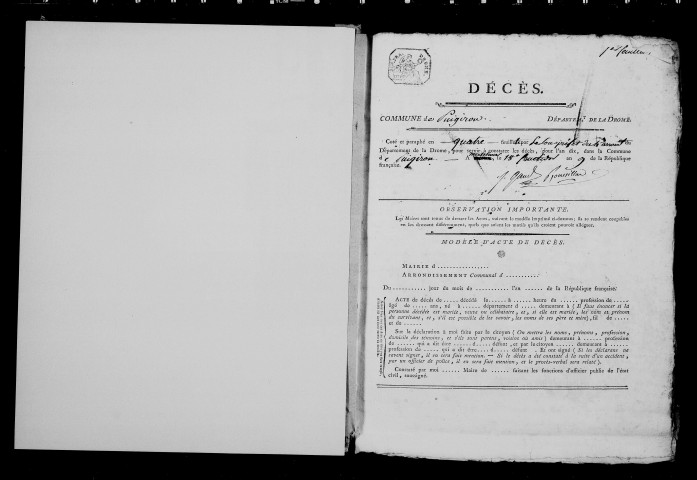 1er feuillet.
DÉCÈS.
COMMUNE de Puigiron. DÉPARTEM.t DE LA DROME.
Coté et paraphé en quatre feuillets par le Sous-préfet du
Département de la Drome, pour servir à constater les décès, dont l'an dix, dans la Commune
de Puigiron. A Montélimar le 18 fructidor an 9 de la République
française.
OBSERVATION IMPORTANTE.
Les Maires sont tenus de dresser les Actes, suivant le modèle imprimé ci-dessous; ils se rendent coupables
en les dressant différemment, quels que soient les motifs qu'ils croient pouvoir alléguer.
MODÈLE D'ACTE DE DÉCÈS.
MAIRIE d
ARRONDISSEMENT Communal d
Du jour du mois de l'an de la République française:
ACTE de décès de décédé le à heure du profession de
âgé de ans, né à département d demeurant à (Il faut énoncer si la
personne décédée est mariée, veuve ou célibataire, et, si elle est mariée, les nom et prénom
du survivant, et, s'il est possible de les savoir, les noms de ses père et mère), fil de
et de
Sur la déclaration à moi faite par le citoyen (On mettra les noms, prénoms, profession,
domicile des témoins, et s'ils sont parens, voisins ou amis) demeurant à profession
de qui a dit être d défunt, et par le citoyen demeurant à
profession de qui a dit être d défunt Et ont signé (Si les déclarans ne
savent signer, il en sera fait mention. — Si le décès a été constaté à la suite d'un accident,
par un officier de police, il en sera fait mention, et le procès-verbal sera relaté).
Constaté par moi Maire de faisant les fonctions d'officier public de l'état
civil, soussigné.